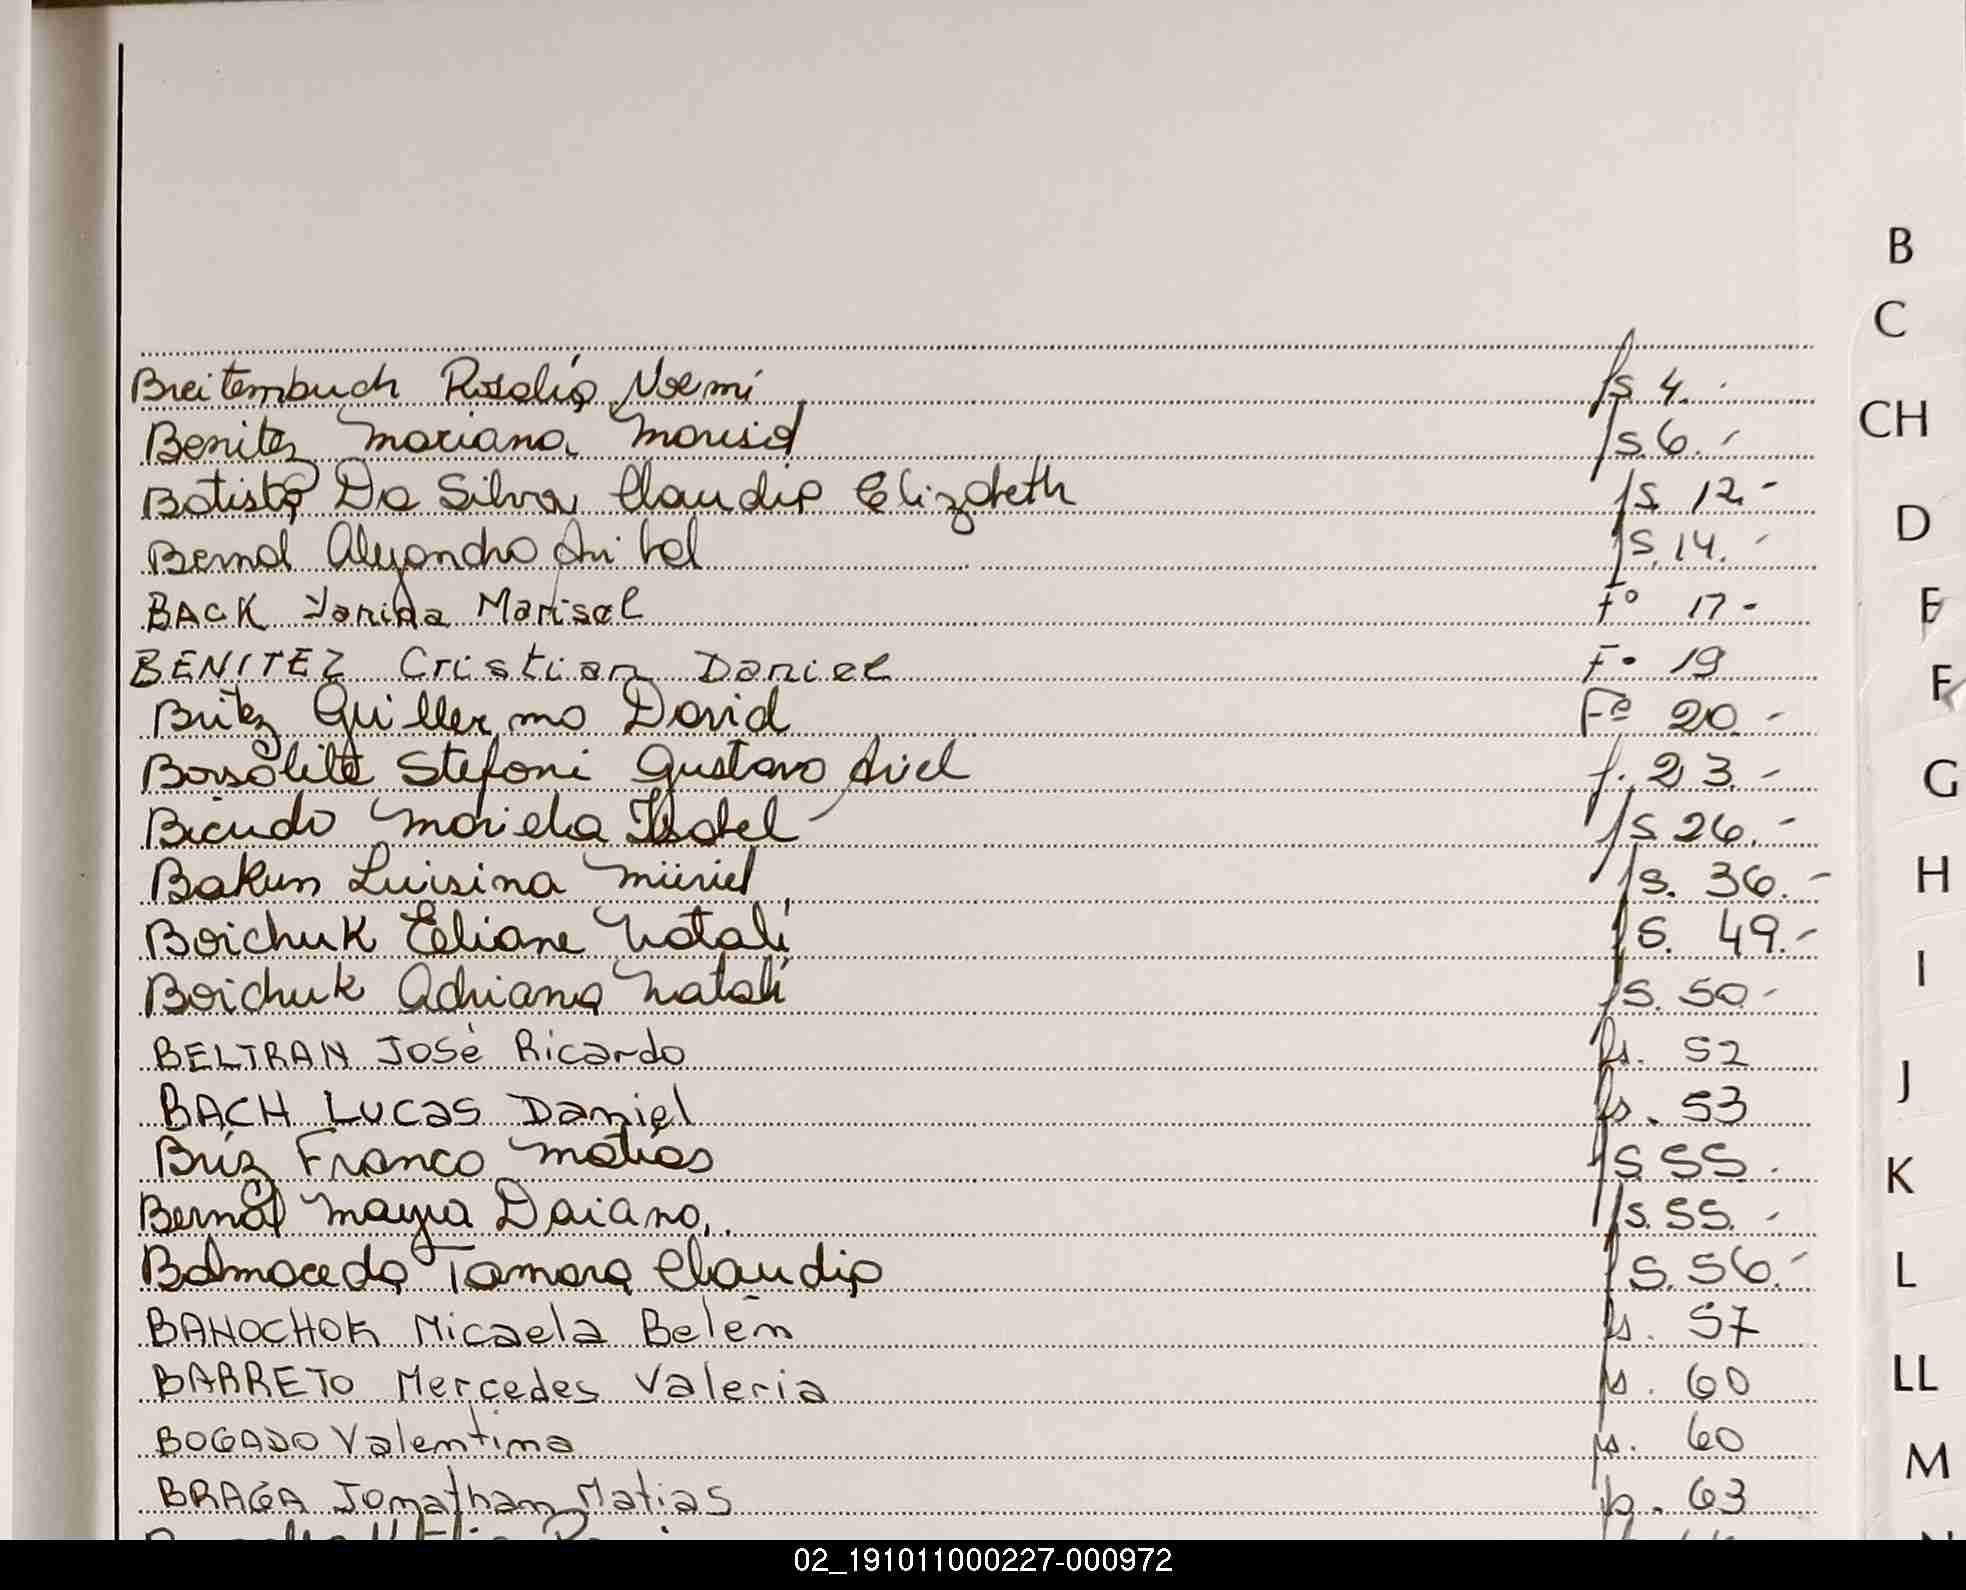 B
C
Breitembuch Rosalía Noemí fs 4.
CH
Benitez Mariana Marisol fs. 6. -
Batista Da Silva Claudia Elizabeth fs. 12. -
D
Bernal Alejandro Anibal fs. 14. -
BACK Yanina Marisel Fº 17 -
E
BENITEZ Cristian Daniel F. 19
F
Britez Guillermo David Fº 20. -
Stefani Gustavo Ariel f. 23. -
G
Bicudo Mariela Isabel fs 26. -
Bakun Luisina Muriel fs. 36. -
H
Boichuk Eliane Natalí fs. 49. -
I
Boichuk Adriana Natalí fs. 50. -
BELTRAN José Ricardo fs. 52
J
BACH LUCAS Daniel fs. 53
Briz Franco Matías fs. 55.
K
Bernal Mayra Daiana. fs. 55. -
Balmaceda Tamara Claudia fs. 56. -
L
BAHOCHOK Micaela Belén fs. 57
BARRETO Mercedes Valeria fs. 60
LL
BOGADO Valentina fs. 60
M
BRAGA Jonathan Matias fs. 63
02_191011000227-000972